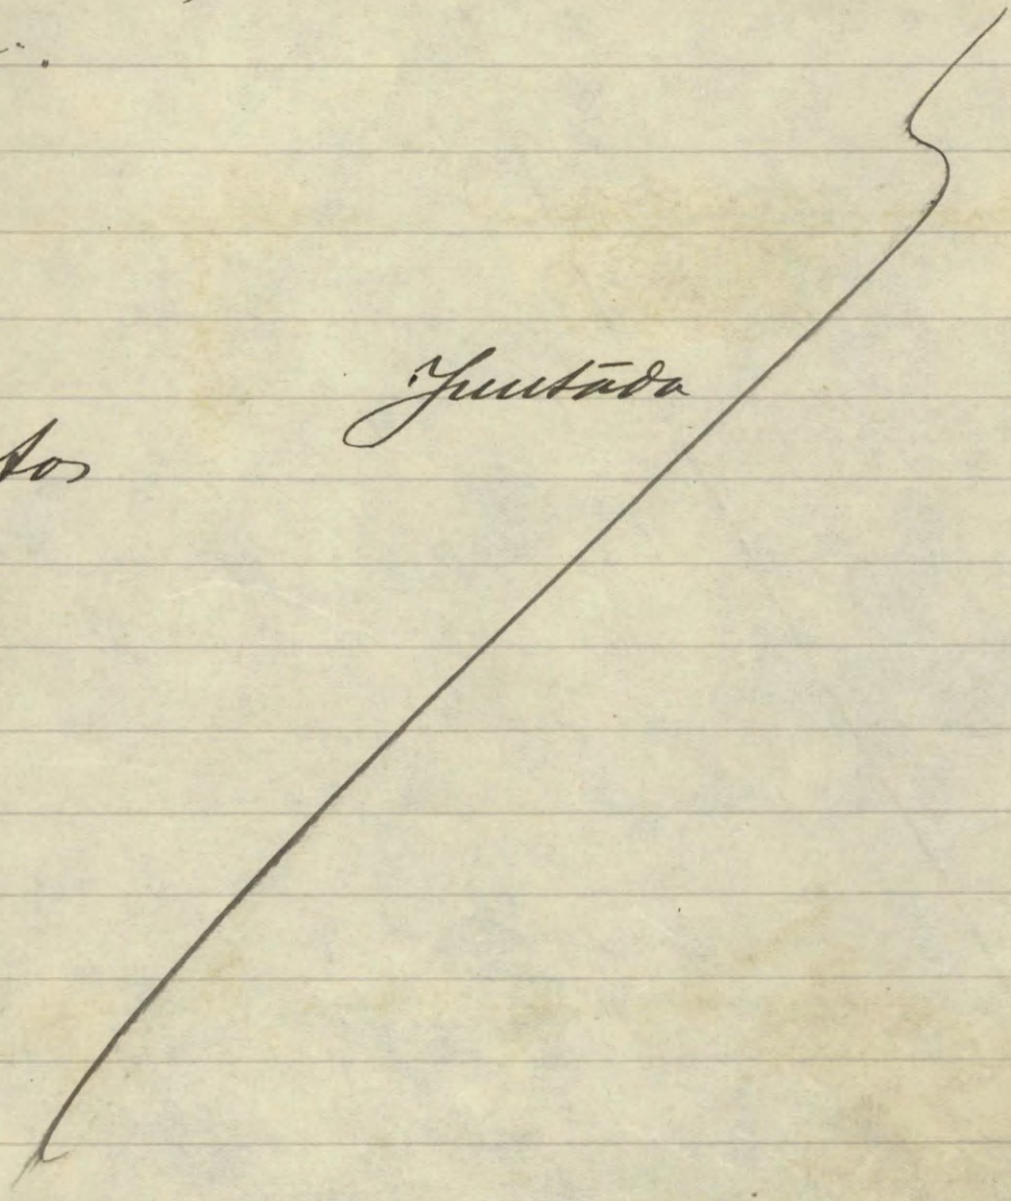 Juntāda
tos